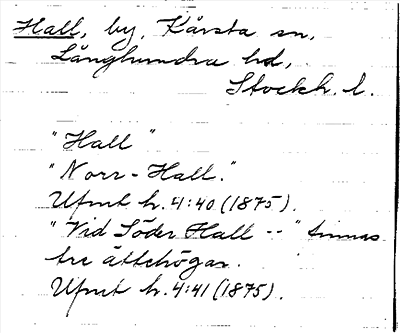 Hall, by, Kårsta sn,
Långhundra hd,
Stockh. l.
"Hall"
"Norr-Hall."
Ufmt h. 4:40 (1875).
"Vid Söder Hall --" finnas
tre ättehögar.
Ufmt h. 4:41 (1875).